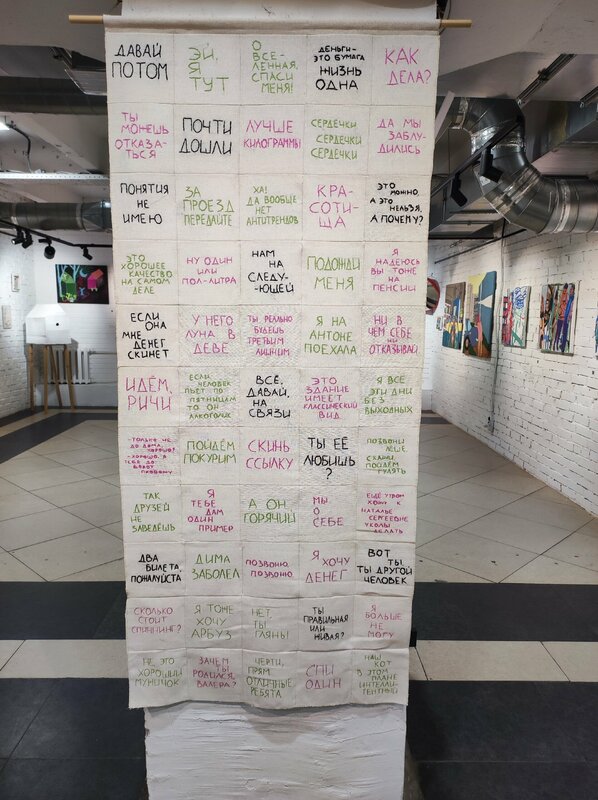 ДАВАЙ
ПОТОМ
ЭЙ,
Я
ТУТ
О
ВСЕ-
ЛЕННАЯ,
СПАСИ
МЕНЯ!
ДЕНЬГИ-
ЭТО БУМАГА
ЖИЗНЬ
ОДНА
КАК
ДЕЛА?
ТЫ
МОЖЕШЬ
ОТКАЗА-
ТЬСЯ
ПОЧТИ
ДОШЛИ
ЛУЧШЕ
КИЛОГРАММЫ
СЕРДЕЧКИ
СЕРДЕЧКИ
СЕРДЕЧКИ
ДА МЫ
ЗАБЛУ-
ДИЛИСЬ
ПОНЯТИЯ
НЕ
ИМЕЮ
ЗА
ПРОЕЗД
ПЕРЕДАЙТЕ
ХА!
ДА ВООБЩЕ
НЕТ
АНТИТРЕНДОВ
КРА-
СОТИ-
ЩА
ЭТО
МОЖНО,
А ЭТО
НЕЛЬЗЯ.
А ПОЧЕМУ?
ЭТО
ХОРОШЕЕ
КАЧЕСТВО
НА САМОМ
ДЕЛЕ
НУ ОДИН
ИЛИ
ПОЛ-ЛИТРА
НАМ
НА
СЛЕДУ-
-ЮЩЕЙ
ПОДОЖДИ
МЕНЯ
Я
НАДЕЮСЬ
ВЫ ТОЖЕ
НА
ПЕНСИИ
ЕСЛИ
ОНА
МНЕ
ДЕНЕГ
СКИНЕТ
У НЕГО
ЛУНА В
ДЕВЕ
ТЫ РЕАЛЬНО
БУДЕШЬ
ТРЕТЬИМ
ЛИШНИМ
Я НА
АНТОНЕ
ПОЕХАЛА
НИ В
ЧЕМ СЕБЕ
НЕ
ОТКАЗЫВАЙ
ИДЁМ,
РИЧИ
ЕСЛИ
ЧЕЛОВЕК
ПЬЁТ ПО
ПЯТНИЦАМ
ТО ОН
АЛКОГОЛИК
ВСЁ,
ДАВАЙ,
НА
СВЯЗИ
ЭТО
ЗДАНИЕ
ИМЕЕТ
КЛАССИЧЕСКИЙ
ВИД
Я ВСЕ
ЭТИ ДНИ
БЕЗ
ВЫХОДНЫХ
-ТОЛЬКО НЕ
ДО ДОМА,
ХОРОШО?
-ХОРОШО, Я
ТЕБЕ ДО
ПОЙДЁМ
ПОКУРИМ
СКИНЬ
ССЫЛКУ
ТЫ ЕЁ
ЛЮБИШЬ
?
ПОЗВОНИ
ЛЕШЕ
СКАЖИ,
ПОЙДЁМ
ГУЛЯТЬ
ТАК
ДРУЗЕЙ
НЕ
ЗАВЕДЁШЬ
Я
ТЕБЕ
ДАМ
ОДИН
ПРИМЕР
А ОН
ГОРЯЧИЙ
МЫ
О
СЕБЕ
ЕЩЁ УТРОМ
ХОЖУ К
НАТАЛЬЕ
СЕРГЕЕВНЕ
УКОЛЫ
ДЕЛАТЬ
ДВА
БИЛЕТА,
ПОЖАЛУЙСТА
ДИМА
ЗАБОЛЕЛ
ПОЗВОНЮ,
ПОЗВОНЮ
Я
ХОЧУ
ДЕНЕГ
ВОТ
ТЫ,
ТЫ ДРУГОЙ
ЧЕЛОВЕК
СКОЛЬКО
СТОИТ
СПИННИНГ?
Я ТОЖЕ
ХОЧУ
АРБУЗ
НЕТ
ТЫ
ГЛЯНЬ!
ТЫ
ПРАВИЛЬНАЯ
ИЛИ
ЖИВАЯ?
Я
БОЛЬШЕ
НЕ
МОГУ
НЕ, ЭТО
ХОРОШИЙ
МУЖИЧОК
ЗАЧЕМ
ТЫ
РОДИЛСЯ,
ВАЛЕРА?
ЧЕРТИ,
ПРЯМ
ОТЛИЧНЫЕ
РЕБЯТА
СПИ
ОДИН
НАШ
КОТ
В ЭТОМ
ПЛАНЕ
ИНТЕЛЛИ-
ГЕНТНЫЙ